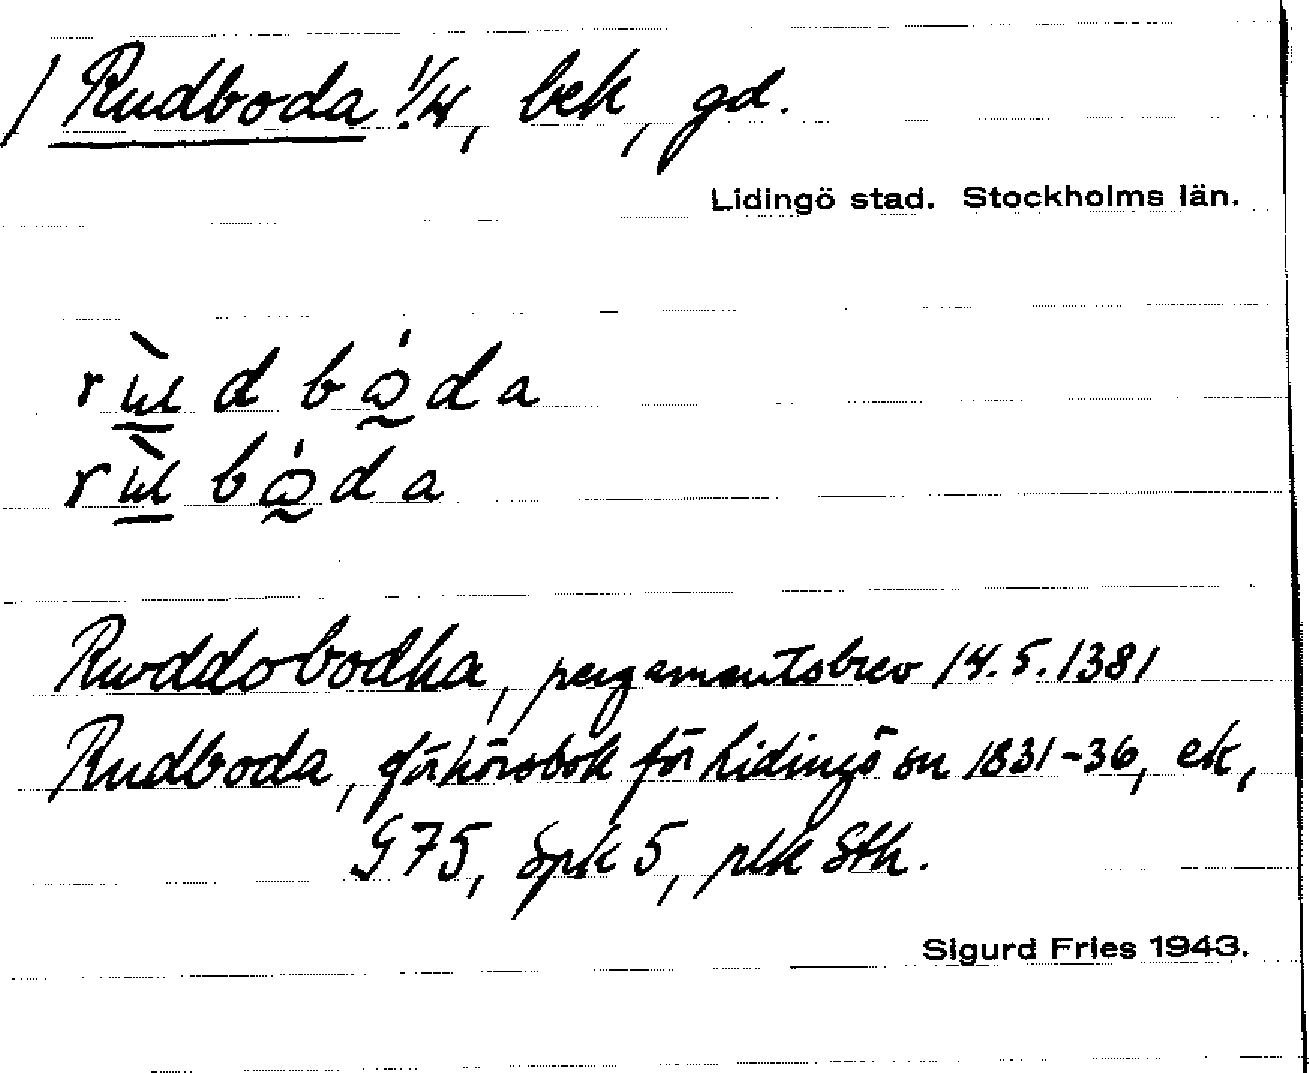 / Rudboda 1/4, bek, gd.
Lidingö stad. Stockholms län.
rɯ̀d bǫ́da
rɯ̀ bǫ́da
Rwddobodha, pergamentsbrev 14.5.1381
Rudboda, förhörsbok för Lidingö sn 1831-36, ek,
G75, öpk 5, plk Sth.
Sigurd Fries 1943.